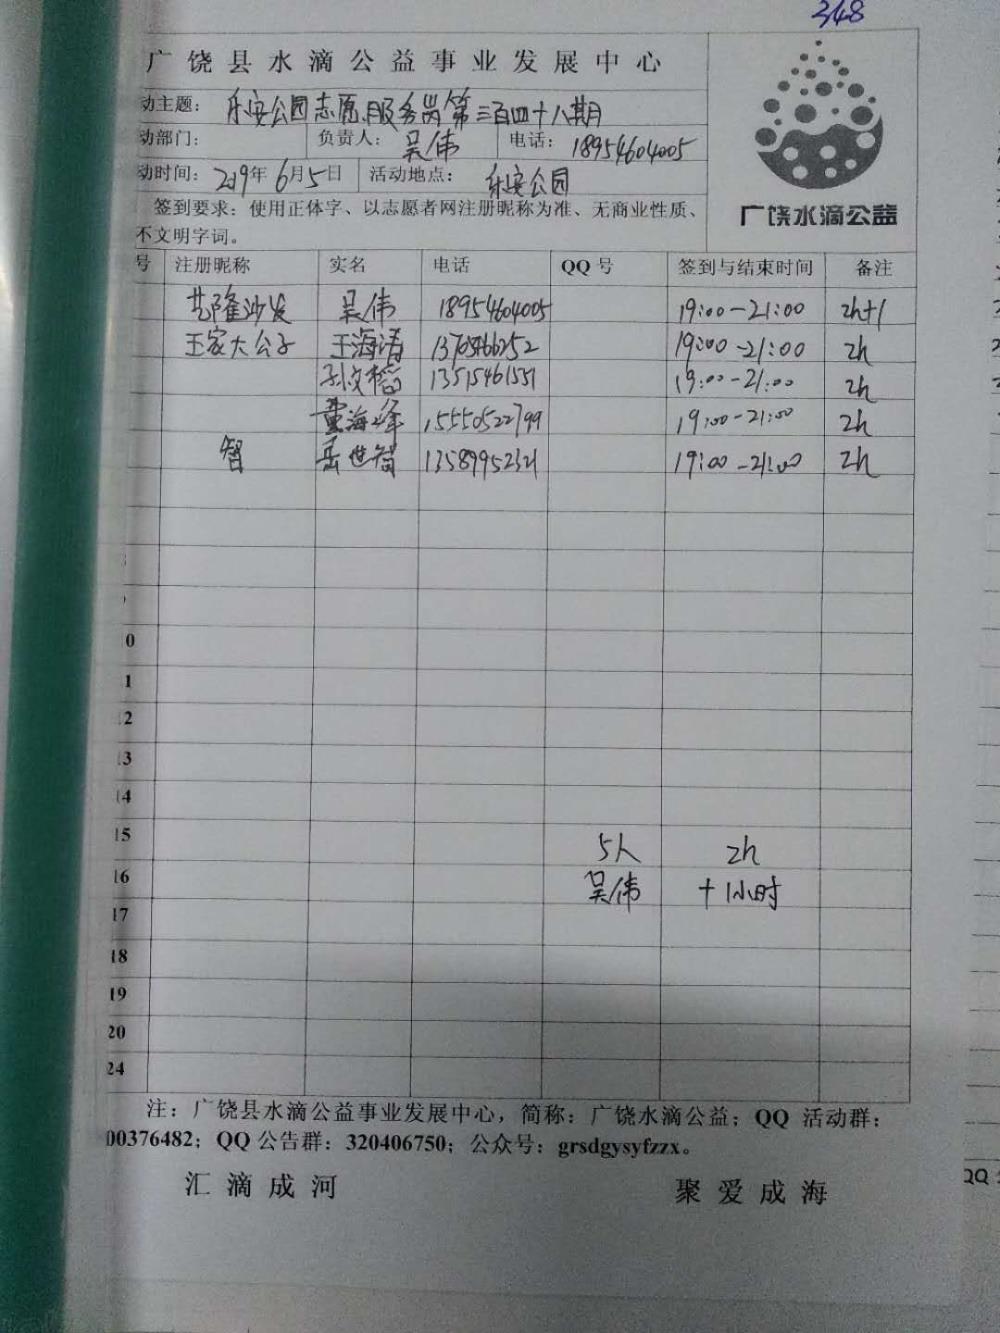 348
广饶县水滴公益事业发展中心
动主题： 乐安公园志愿服务岗第三百四十八期
动部门： 负责人： 吴伟 电话： 18954604005
动时间： 2019年6月5日 活动地点： 乐安公园
签到要求：使用正体字、以志愿者网注册昵称为准、无商业性质、
不文明字词。
广饶水滴公益
号 注册昵称 实名 电话 QQ号 签到与结束时间 备注
艺隆沙发 吴伟 18954604005 19:00-21:00 2h+1
王家大公子 王海涛 13705466252 19:00-21:00 2h
13515461551 19:00-21:00 2h
董海峰 15550522799 19:00-21:00 2h
智 岳世智 13589952321 19:00-21:00 2h
0
1
12
13
14
15 5人 2h
16 吴伟 +1小时
17
18
19
20
24
注：广饶县水滴公益事业发展中心，简称：广饶水滴公益；QQ 活动群：
00376482；QQ公告群：320406750；公众号：grsdgysyfzzx。
汇滴成河 聚爱成海